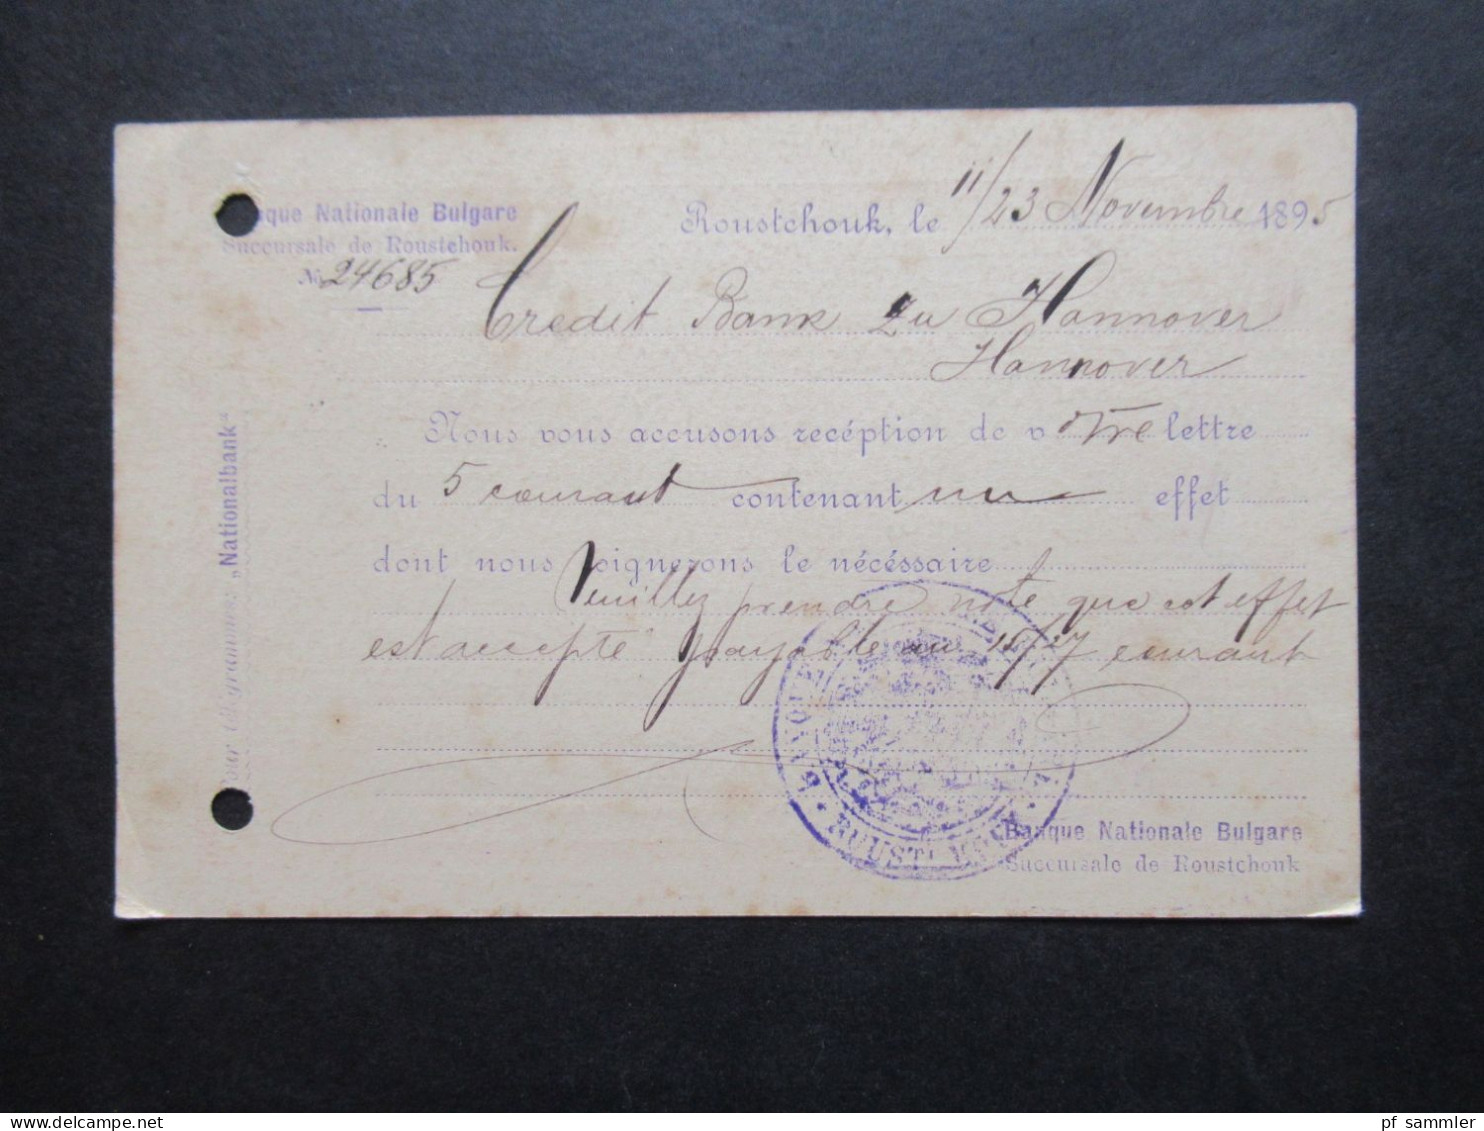 Banque Nationale Bulgare
Succursale de Roustchouk.
No 24685
Roustchouk, le 11/23 Novembre 1895
Credit Bank zu Hannover
Hannover
Nous vous accusons recéption de votre lettre
du 5 courant contenant un effet
dont nous soignerons le nécéssaire
Veuillez prendre note que cet effet
est accepté payable au 15/27 courant
Pour télégrammes: „Nationalbank“
ROUSTCHOUK
Banque Nationale Bulgare
Succursale de Roustchouk
pf sammler